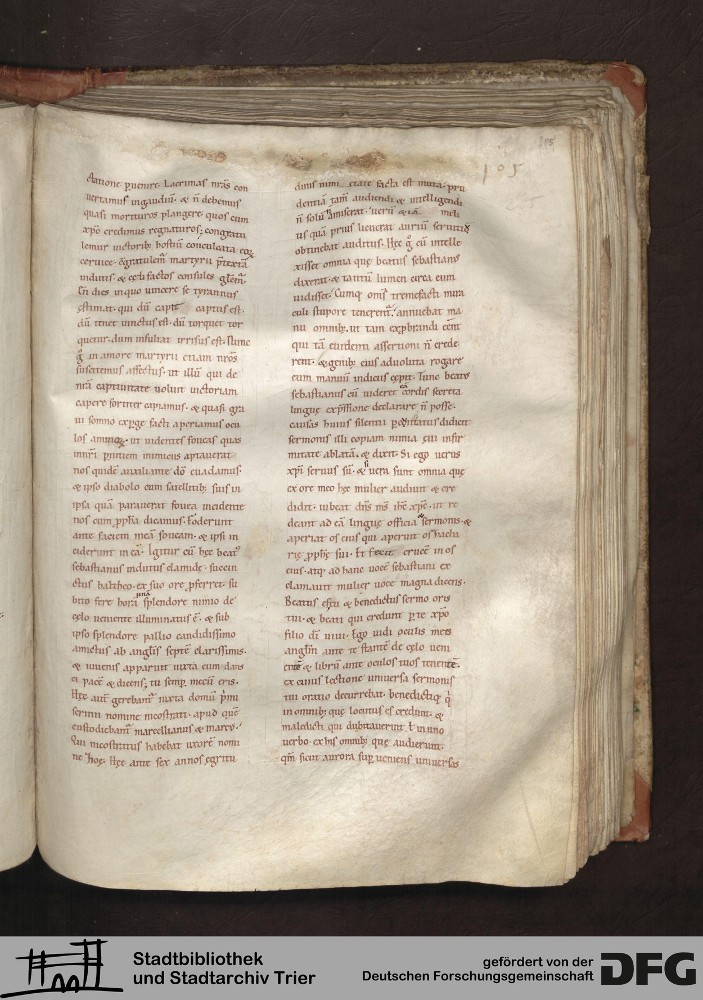 105
105
ratione puenire. Lacrimas nr̄as con
uertamus in gaudiū. & ñ debemus
quasi morituros plangere. quos cum
xpō credimus regnaturos; congratu
lemur uictorib; hostiū conculcata
ceruice.
induti. & celi factos consules
dies in quo uincere se tyrannus
estimat. qui dū capit captus est.
dū tenet uinctus est. dū torquet tor
quetur. dum insultat irrisus est. Hunc
g̊ in amore martyrū etiam nr̄os
suscitemus affectus. ut illū qui de
nr̄a captiuitate uoluit uictoriam
capere fortiter capiamus. & quasi gra
ui somno expge facti aperiamus ocu
los ut uidentes foueas quas
initiū inimicus aptauerat
nos quidē auxiliante dō euadamus.
& ipso diabolo cum satellitib; suis in
ipsa quā parauerat fouea incidente
nos cum ppha dicamus. foderunt
ante faciem meā foueam. & ipsi in
ciderunt in eā. Igitur cū hęc beat'
sebastianus indutus clamide. succin
ctus baltheo. ex suo ore pferret. su
bito fere hora una splendore nimio de
celo ueniente illuminatus ē. & sub
ipso splendore pallio candidissimo
amictus ab anglis septē clarissimis.
& iuuenis apparuit iuxta eum dans
ei pacē & dicens; tu semp mecū eris.
Hęc aut gerebant' iuxta domū
nomine nicostrati. apud quē
custodiebant' marcellianus & marc'.
Qui nicostratus habebat uxorē nomi
ne zoę. Hęc ante sex annos egritu
dinis facta est muta. pru
dentiā tam̄ audiendi & intelligendi
ñ solū amiserat. uerū
us quā prius licuerat auriū seruitiū
obtinebat auditus. Hęc g̊ cū intelle
xisset omnia quę beatus sebastianus
dixerat. & tantū lumen circa eum
uidisset. Cumq omīs tremefacti mira
culi stupore tenerent'. annuebat ma
nu omnib; ut tam
qui tā euidenti assertioni ñ crede
rent. & genib; eius aduoluta rogare
eum manuū indiciis cępit. Tunc beatus
sebastianus cū uideret eā cordis secreta
linguę expssione declarare ñ posse.
causas huius silentii pcontatus didicit
sermonis illi copiam nimia cui infir
mitate ablatā. & dixit. Si ego uerus
xpī seruus sū. & si uera sunt omnia quę
ex ore meo hęc mulier audiuit & cre
didit. iubeat dn̄s ms̄ ihē xp̄c. ut re
deant ad eā linguę officia sermonis. &
aperiat os eius qui aperuit os zacha
rię pphę sui. Et fecit crucē in os
eius. atq ad hanc uocē sebastiani ex
clamauit mulier uoce magna dicens.
Beatus es tu & benedictus sermo oris
tui. & beati qui credunt p te xpō
filio dī uiui. Ego uidi oculis meis
anglm̄ ante te stantē de celo ueni
entē & librū ante oculos tuos tenentē.
ex cuius lectione uniuersa sermonis
tui oratio decurrebat. benedictiq q
in omnib; quę locutus es credunt. &
maledicti qui dubitauerint ł in uno
uerbo. ex his omnib; quę audierunt.
qm̄ sicut aurora sup ueniens uniuersas
Stadtbibliothek
und Stadtarchiv Trier
gefördert von der
Deutschen Forschungsgemeinschaft
DFG